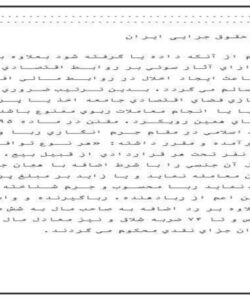 حقوق جزایی ایران
م از آنکه داده یا گرفته شود بعلاوه ب
ارای آثار سوئی بر روابط اقتصادی
اعث ایجاد اخلال در روابط مالی اف
الم می گردد. بدین ترتیب ضروری
ازی فضای اقتصادی جامعه اخذ یا پر
با انجام معاملات ربوی ممنوع باشد
ای همین رویکرد، مقنن در ماده ۵۹۵
اسلامی در مقام جرم انگاری ربا و
برآمده و مقرر داشته: «هر نوع توافق
نفر تحت هر قراردادی از قبیل بیع،
آن جنسی را با شرط اضافه با همان جن
معامله نماید و یا زاید بر مبلغ پر
نماید ربا محسوب و جرم شناخته
ین اعم از ربادهنده، رباگیرنده و وا
لاوه بر رد اضافه به صاحب مال به شش م
س و تا ۷۴ ضربه شلاق و نیز معادل مال
ان جزای نقدی محکوم می گردند.